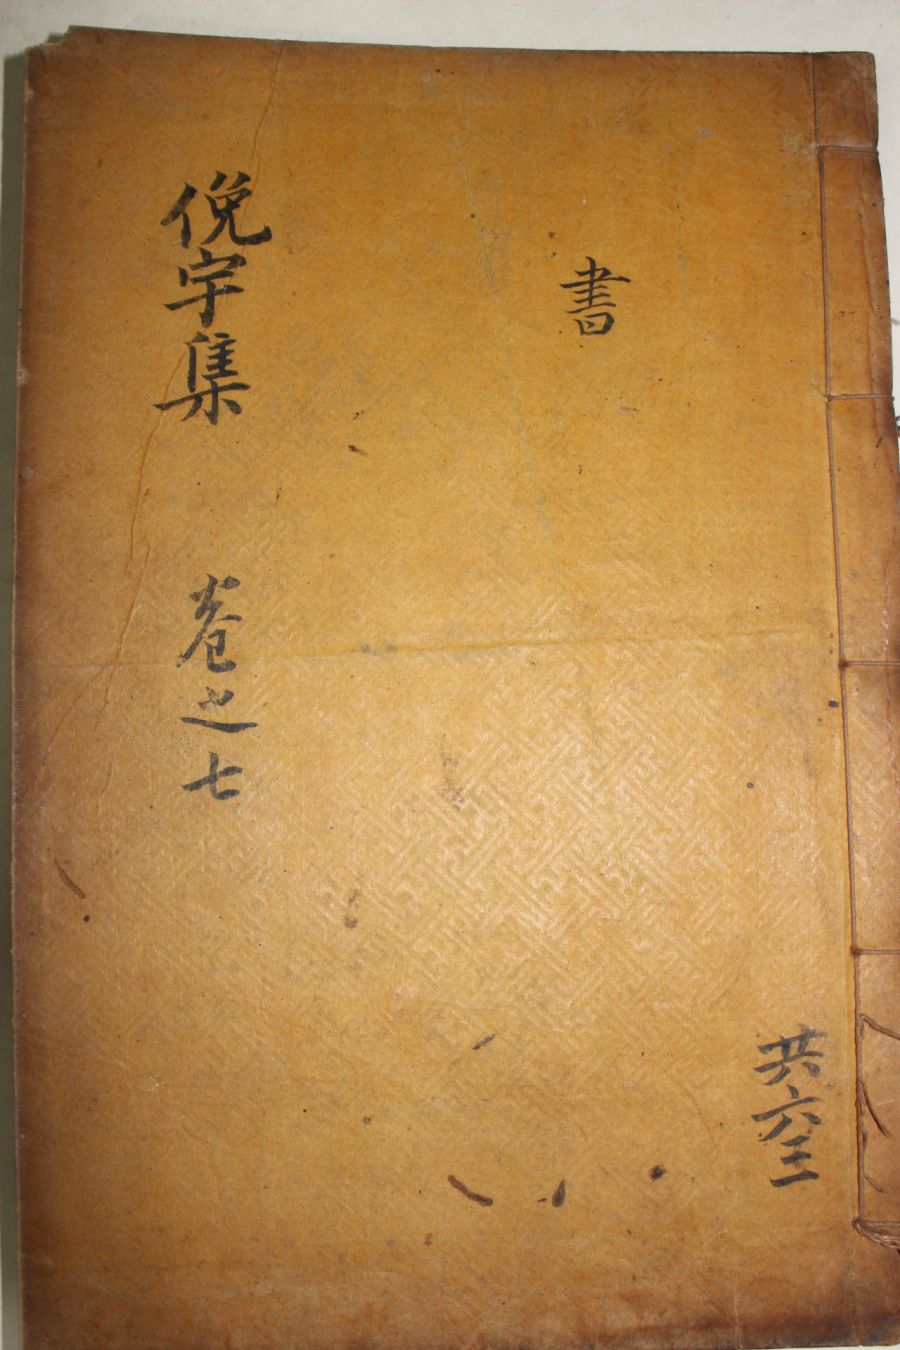 共六三
書
俛宇集 卷之七